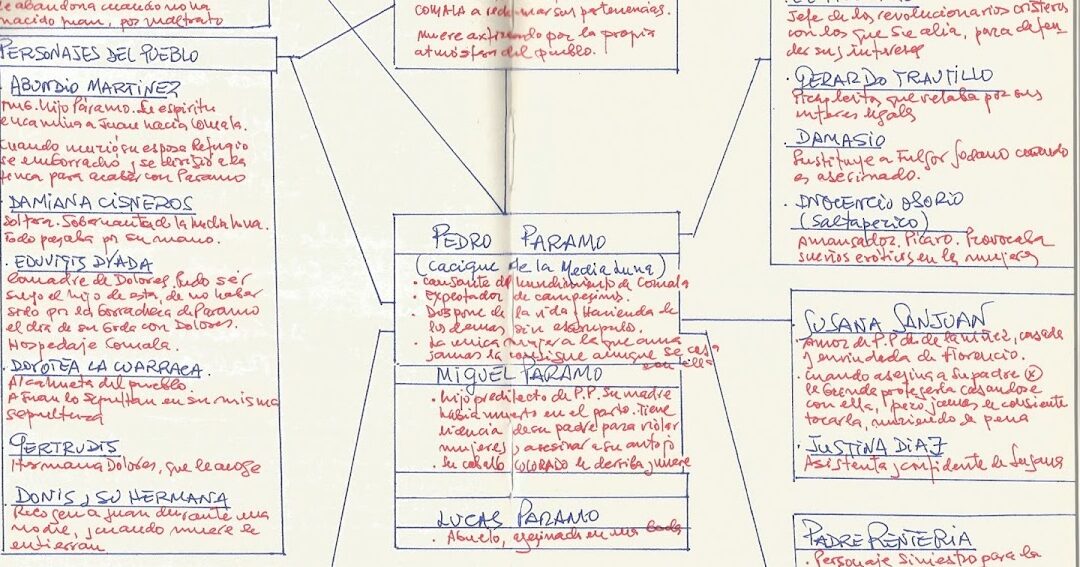 le abandona cuando no ha
nacido Juan, por maltrato
PERSONAJES DEL PUEBLO
· ABUNDIO MARTINEZ
hijo Páramo. Su espíritu
encamina a Juan hacia Comala.
Cuando murió su esposa Refugio
se emborrachó y se dirigió a la
finca para acabar con Paramo
· DAMIANA CISNEROS
Soltera. Gobernanta de la media luna.
Todo pasaba por su mano.
· EDUVIGIS DYADA
Comadre de Dolores, Pudo ser
suyo el hijo de esta, de no haber
sido por la borrachera de Paramo
el día de su boda con Dolores.
Hospedaje Comala.
· DOROTEA LA CUARRACA.
Alcahueta del pueblo.
A Juan lo sepultan en su misma
sepultura
· GERTRUDIS
Hermana Dolores, que le acoge
· DONIS Y SU HERMANA
Recogen a Juan durante una
noche, y cuando muere le
entierran
COMALA a reclamar sus pertenencias.
Muere axfixiado por la propia
atmósfera del pueblo.
PEDRO PARAMO
(Cacique de la Media Luna)
· Causante del hundimiento de Comala
· Explotador de campesinos.
· Dispone de la vida y Hacienda de
los demas sin escrúpulos.
· La unica mujer a la que ama
jamas la consigue aunque se casa
con ella
MIGUEL PARAMO
· hijo predilecto de P.P. Su madre
había muerto en el parto. Tiene
licencia de su padre para violar
mujeres y asesinar a su antojo
· Su caballo COLORADO le derriba y muere
LUCAS PARAMO
· Abuelo, asesinado en una boda
Jefe de los revolucionarios cristeros
con los que se alia, para defen
der sus intereses
· GERARDO TRAUTILLO
Picapleitos que velaba por sus
interes legals
· DAMASIO
Sustituye a Fulgor Sedano cuando
es asesinado.
· INOCENCIO OSORIO
(Saltaperico)
Amansador. Pícaro. Provocaba
sueños eróticos en las mujeres
· SUSANA SANJUAN
Amor de P.P. de la niñez, casada
y enviudada de Florencio.
· Cuando asesina a su padre (x)
le pretende protegerla casandose
con ella, pero jamas le consiente
tocarla, muriendo de pena
· JUSTINA DIAZ
Asistenta y confidente de Susana
PADRE RENTERIA
· Personaje siniestro para la